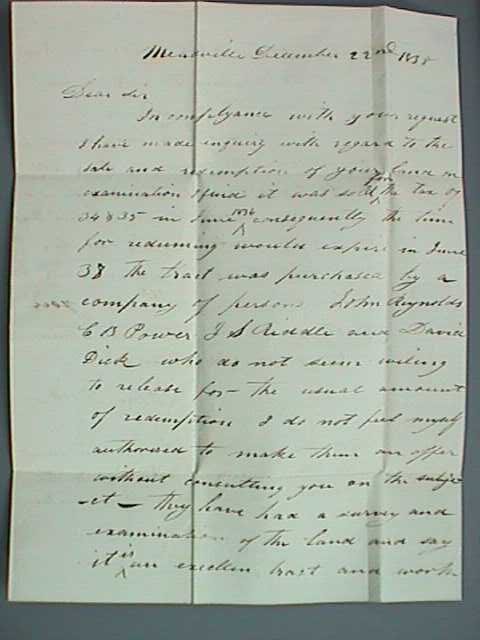 Meadville December 22nd 1838
Dear Sir
In complyance with your request
I have made enquiry with regard to the
sale and redemption of your land on
examination I find it was sold for the tax of
34 & 35 in June 1836 consequently the time
for redeeming would expire in June
38 the tract was purchased by a
company of persons John Reynolds
C B Power J S Riddle and David
Dick who do not seem willing
to release for the usual amount
of redemption I do not feel myself
authorised to make them an offer
without consulting you on the subje
-ct - they have had a survey and
examination of the land and say
it is an excellen tract and worth